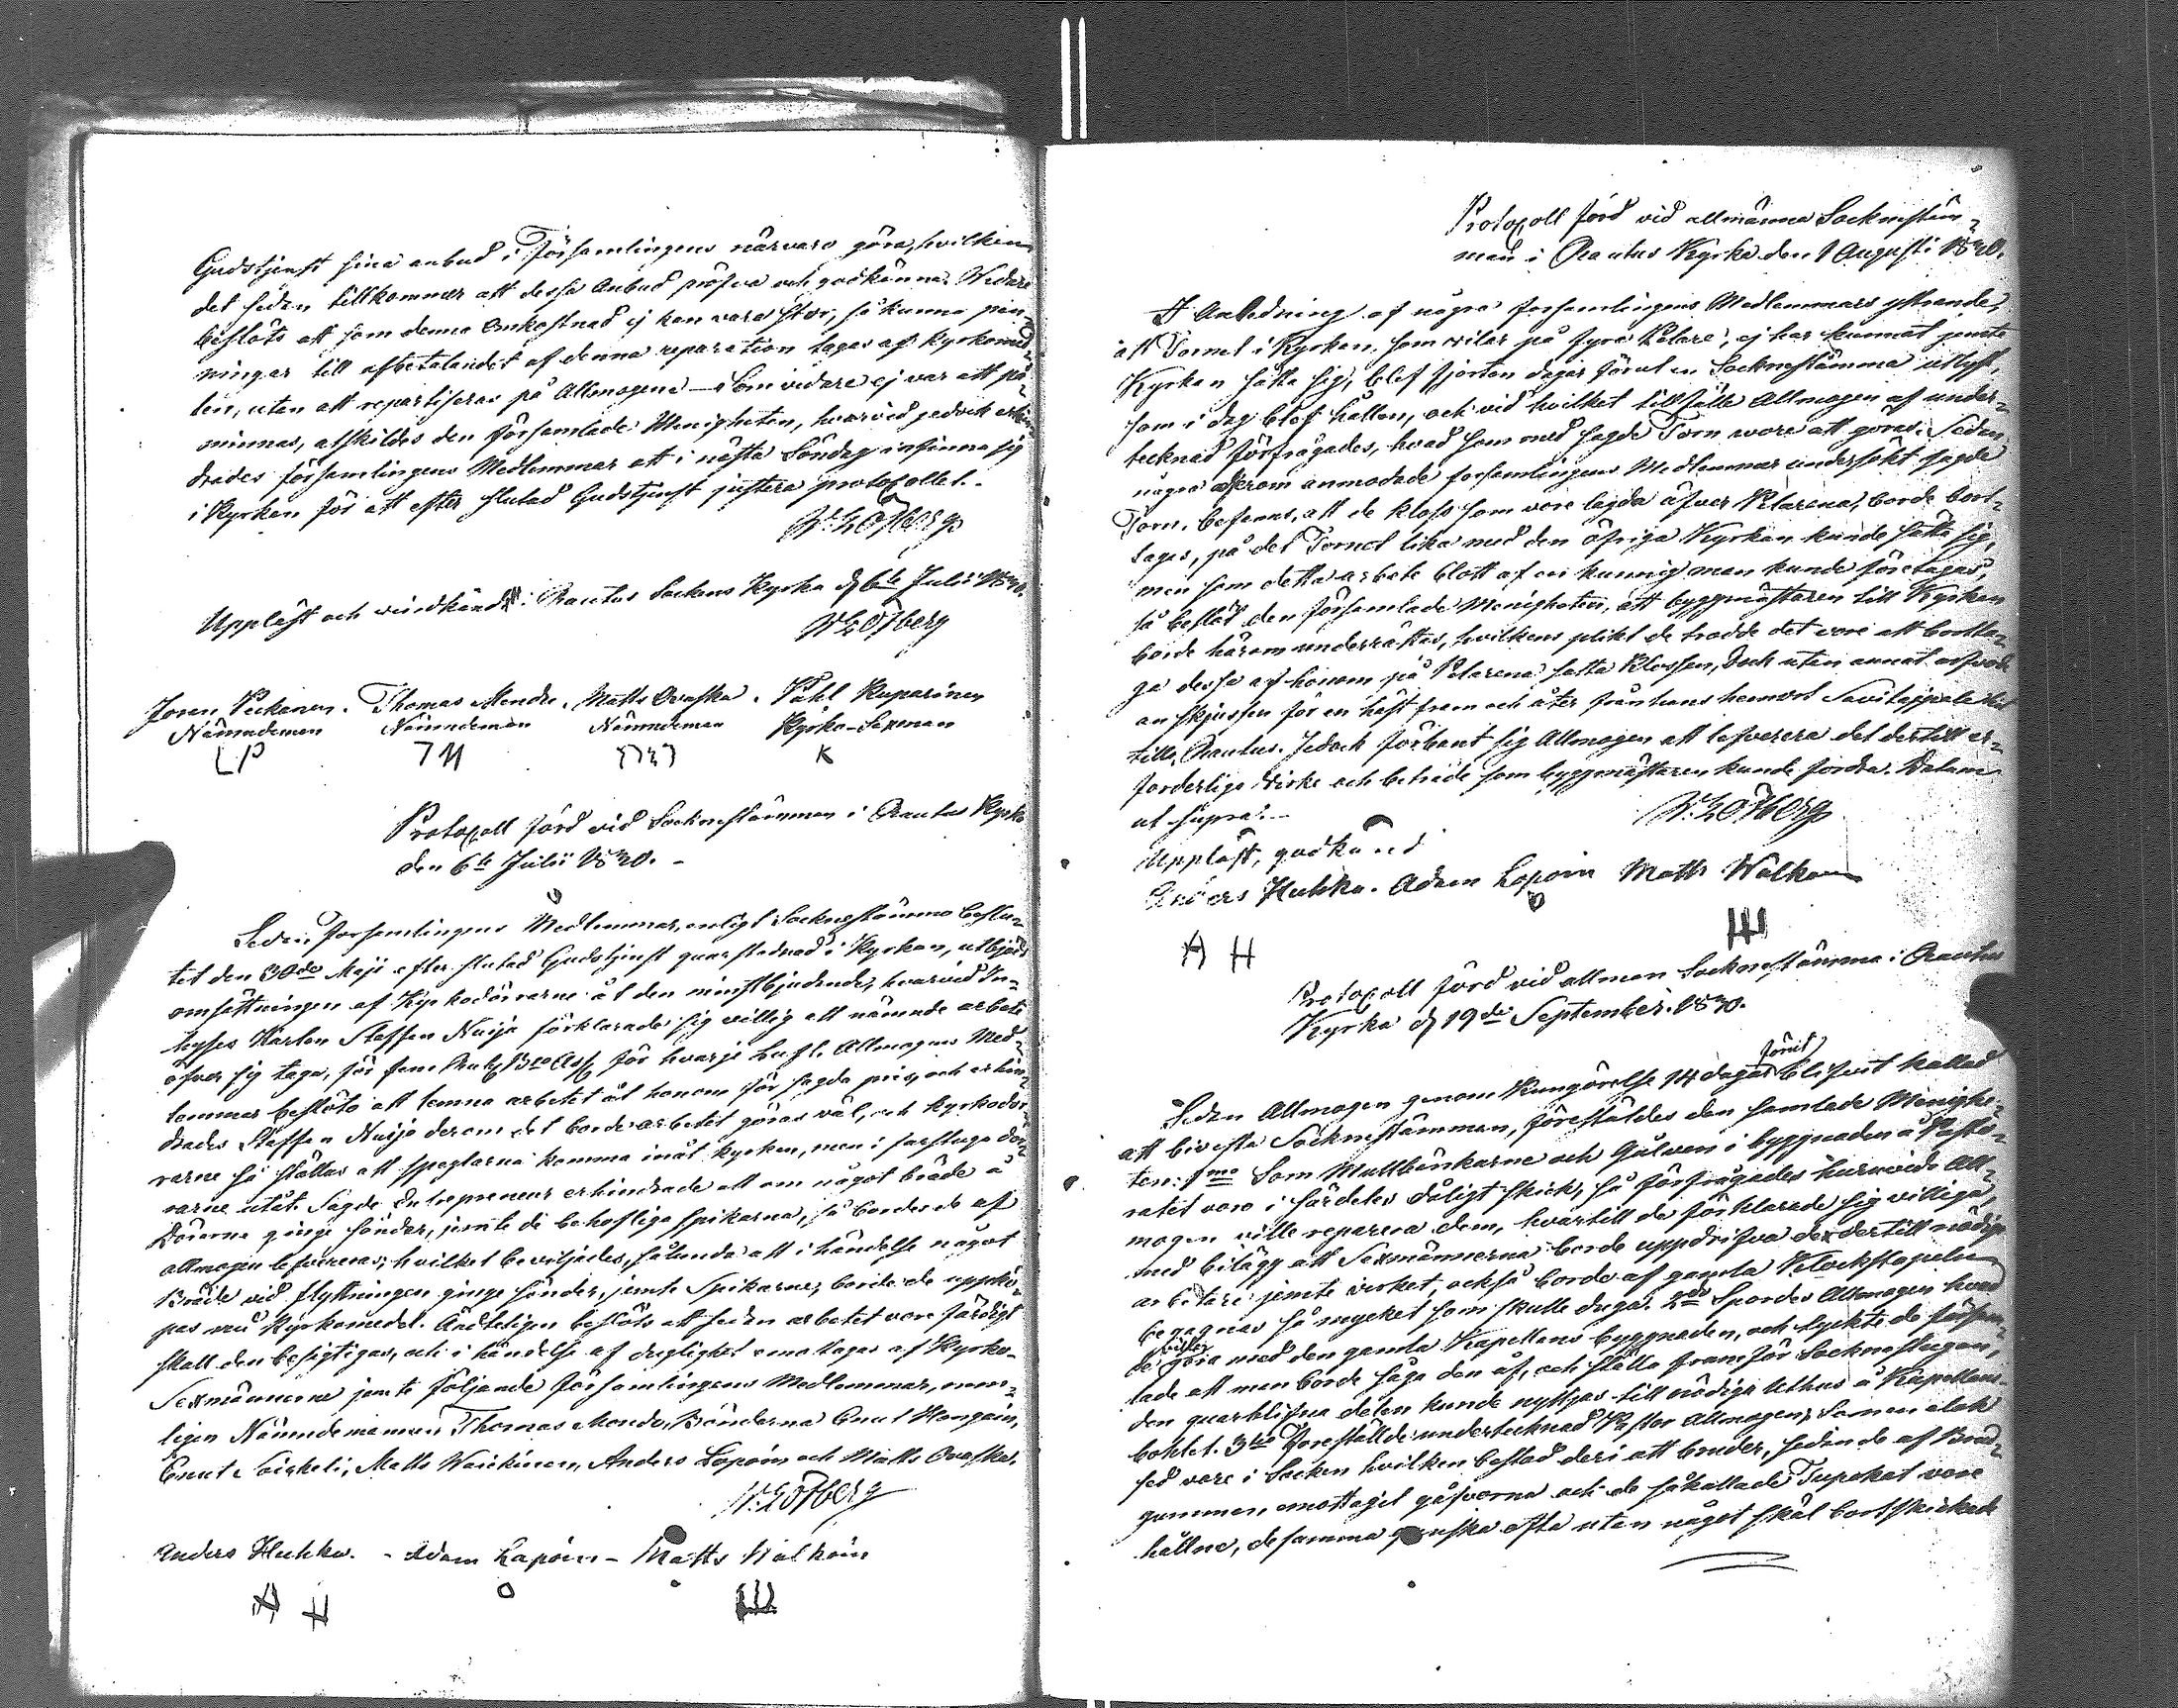 Gudstjenst sina anbud i Församlingens närvaro göra, hvilken
det sedan tillkommer att dessa Anbud pröfva och godkänna. Widare
beslöts att som denna Omkostnad ej kan vara stor, så kunna pen-
ningar till afbetalandet af denna reparation tagas af Kyrkomed-
len, utan att repartiseras på Allmogene — Som vidare ej var att på-
minnas, åtskildes den församlade Menigheten, hvarvid jedoch erhin-
drades församlingens Medlemmar att i nästa Söndag infinna sig
i Kyrkan för att efter slutad Gudstjenst justera protocollet.-
Uppläst och vidkändt i Rautus Sockens Kyrka d 6te Julii 1830.
Joran Peckanen. Thomas Mendo. Matts Ovaska. Påhl Kuparinen
Nämndeman Nämndeman Nämndeman Kyrko-Sexman
LP TM K
Protocoll förd vid Socknestämman i Rautus Kyrka
den 6te Julii 1830. -
Sedan Församlingens Medlemmar, enligt Socknestämmo beslu-
tet den 30de Maji efter slutad Gudstjenst quarstadnad i Kyrkan, utbjöds
omsättningen af Kyrkodörrarne åt den minstbjudande, hvarvid In-
hyses Karlen Staffan Naija förklarade sig villig att nämnde arbete
öfver sig taga, för fem Rub Bco Ass, för hvarje hvarföre Allmogens Med-
lemmar beslöto att lemna arbetet åt honom för sagde pris, och erhin-
drades Staffan Naija derom det borde arbetet göras väl, och kyrkodör-
rarne så ställas att speglarna komma inåt kyrkan, men i farstuga dör-
rarne utåt. Sagde Entrepreneur erhindrade att om något bräde å
Dörrarne ginge sönder, jemte de behöfliga spikarna, så borde de af
allmogen lefvereras; hvilket beviljades, sålunda att i händelse något
Bräde vid flyttningen ginge sönder, jemte Spikarne, borde de uppkö-
pas med Kyrkomedel. Ändteligen beslöts att sedan arbetet vore färdigt
skall den besigtigas, och i händelse af duglighet emottagas af Kyrko-
Sexmännerne jemte följande församlingens Medlemmar, nem-
ligen Nämndemannen Thomas Mendo, Bönderna Enut Hongain,
Enut Loiskeli, Matts Waickinen, Anders Lapoin och Matts Ovaska.
Anders Huhka. - Adam Lapoin - Matts Walkoin
A H
Protocoll förd vid allmänna Socknestäm-
man i Rautus Kyrka den 1 Augusti 1830.
I Anledning af några församlingens Medlemmars yttrande,
att Tornet i Kyrkan, som vilar på fyra Pelare, ej har kunnat jemte
Kyrkan sätta sig, blef fjorton dagar förut en Socknestämma utlyst,
som i dag blef hållen, och vid hvilket tillfälle Allmogen af under-
tecknad förfrågades, hvad som med sagde Torn wore att göras. Sedan
några derom anmodade församlingens Medlemmar undersökt sagde
Torn, befanns, att de kloss som vore lagda öfver Pelarena, borde bort-
tagas, på det Tornet lika med den öfriga Kyrkan kunde sätta sig,
men som detta arbete blott af en kunnig man kunde företagas,
så beslöt den församlade Menigheten, att byggmästaren till Kyrkan
borde härom underrättas, hvilkens plikt de trodde det vore att borttа-
ga dessa af honom på Pelarena satta Klossen, dock uten annat
an skjussen för en häst fram och åter från hans hemort Savitaipale
till Rautus. Jedock förbant sig Allmogen att lefverera det dertill er-
forderliga virke och beträde som byggmästaren kunde fordra. Datum
ut supra.—
Uppläst, godkänd
Anders Huhka. Adam Lapoin Matts Walkoin
A H
Protocoll förd vid allmän Socknestämma i Rautus
Kyrka d 19de September. 1830.
förut
Sedan Allmogen genom Kungörelse 14 dagar blifvit kallad
att bivista Socknestämman, föreställdes den samlade Menighe-
ten: 1mo Som Mullbänkarne och Gålven i byggnaden å Pasto-
ratet voro i särdeles dåligt skick, så förfrågades huruvida All-
mogen ville reparera dem, hvartill de förklarade sig villiga,
med tilägg att Sexmännerna borde uppdrifva de dertill nödige
arbetare jemte virket, också borde af gamla Klockstapelen
begagnas så mycket som skulle duga. 2do Spordes Allmogen hvad
ville
de göra med den gamla Kapellans byggnaden, och tyckte de försam-
lade att man borde såga den af, och ställa framför Socknestugan,
den quarblifna delen kunde nyttjas till nödiga Uthus å Kapellans-
bohlet. 3tio Föreställde undertecknad Pastor Allmogen, Som en elak
sed vore i Socken hvilken bestod deri att bruder, sedan de af Brud-
gummen emottagit gåfvorna och de såkallade Tupakat vore
hållne, desamma ganska ofta uten något skäl bortskickade